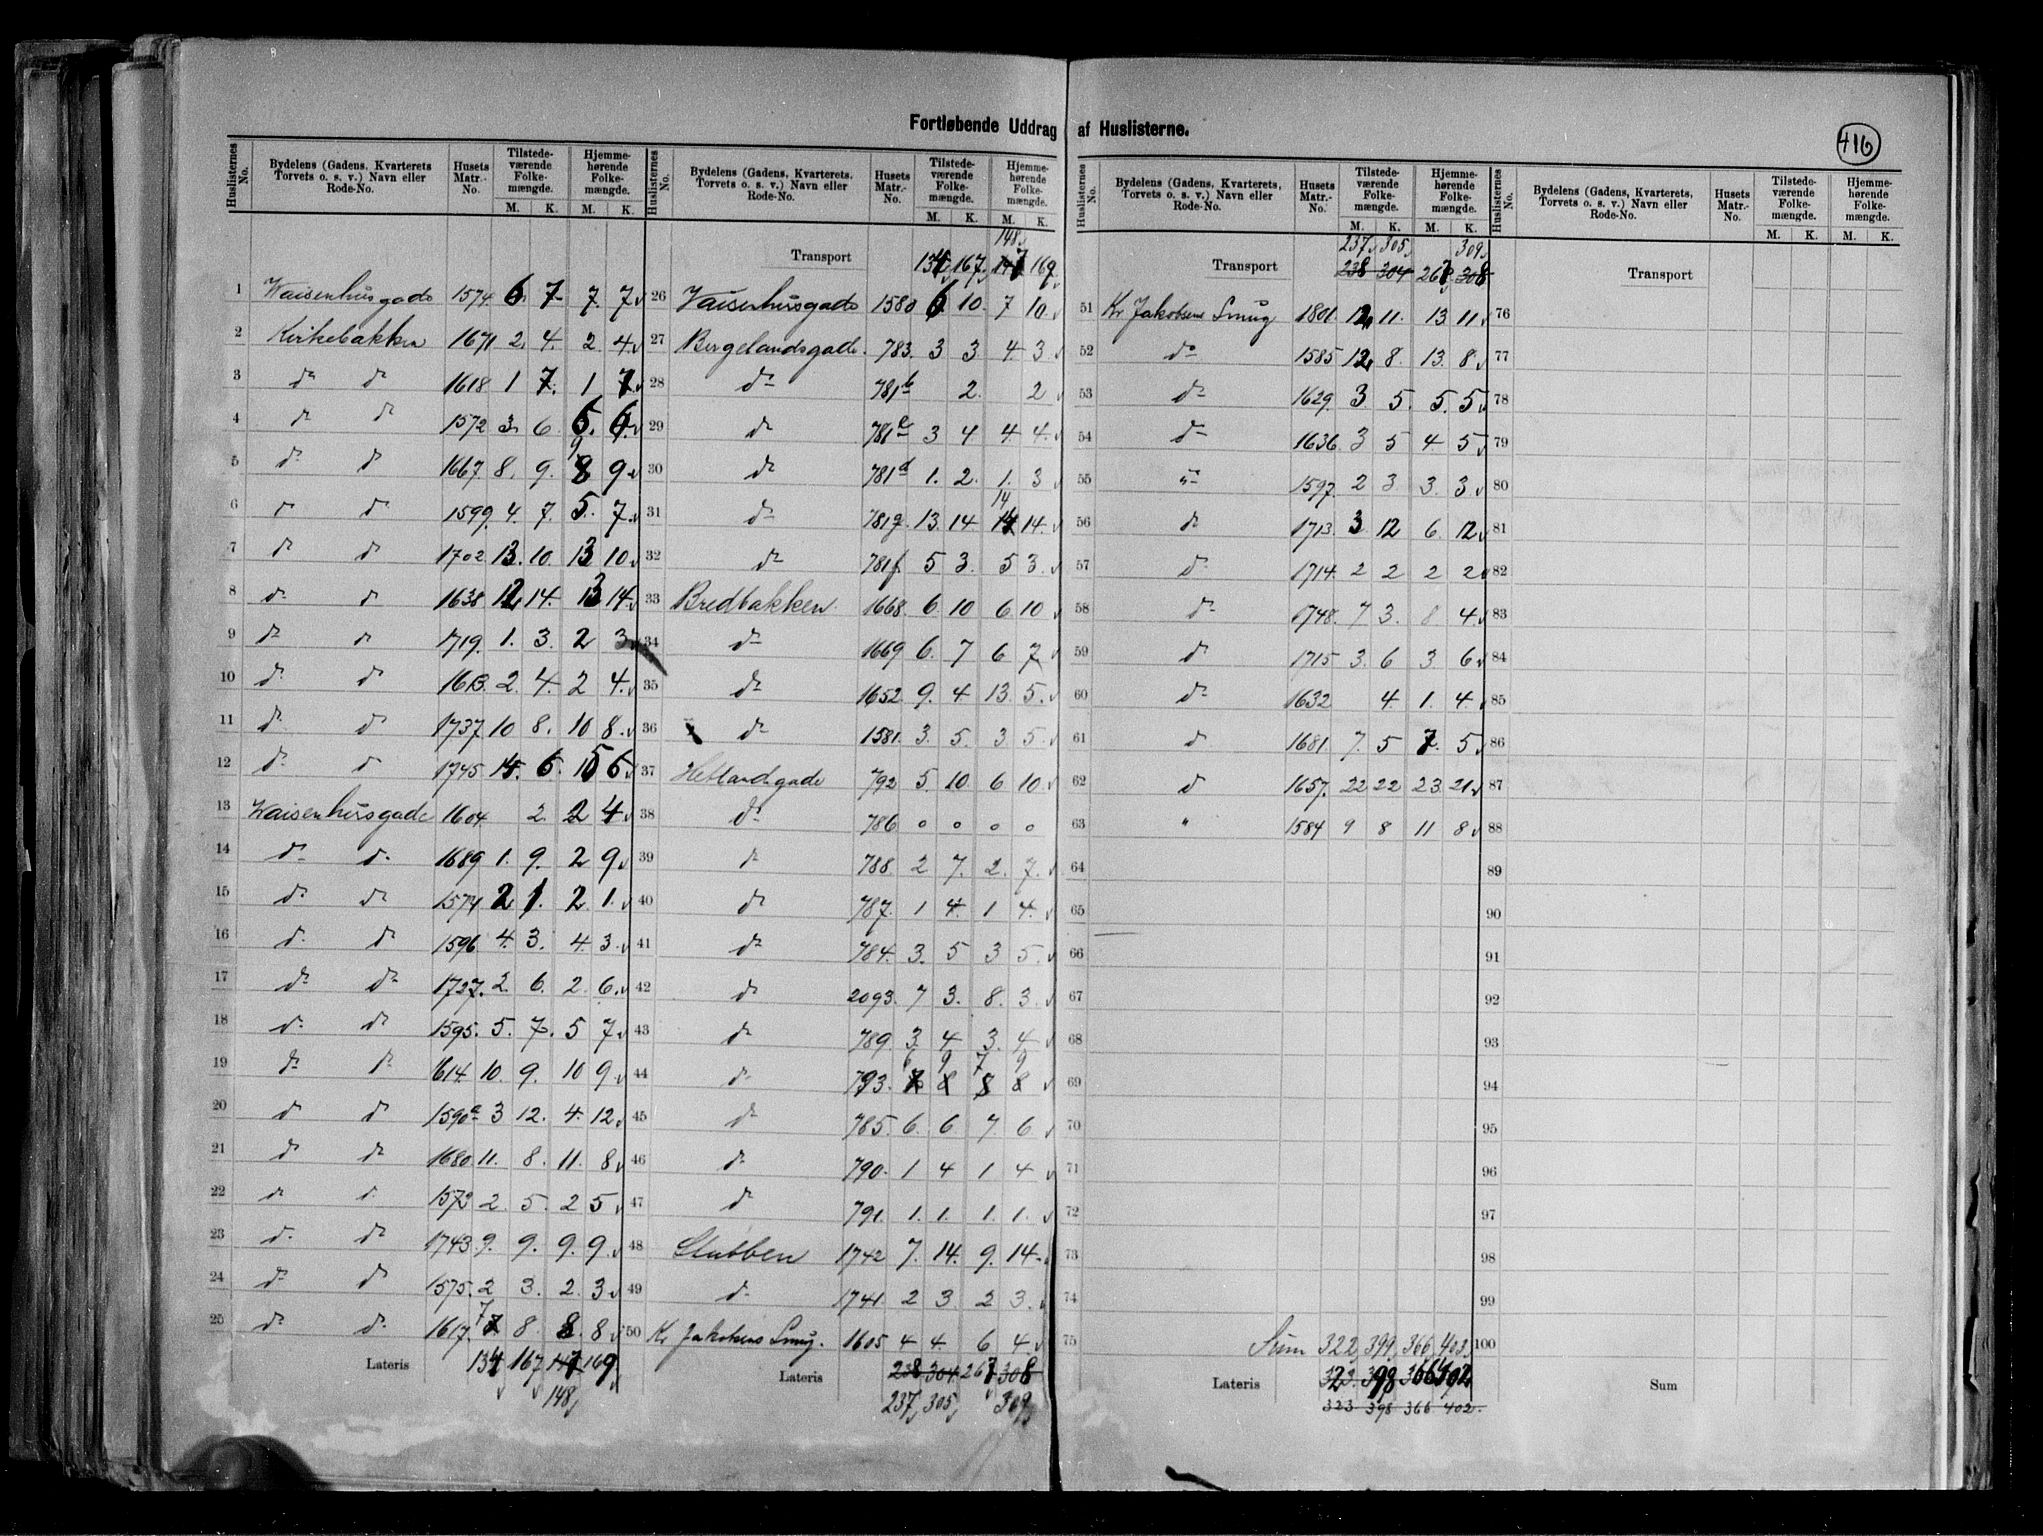 Fortløbende Uddrag af Huslisterne.
416
Huslisternes No. Bydelens (Gadens, Kvarterets Torvets o. s. v.) Navn eller Rode-No. Husets Matr.-No. Tilstede-værende Folke-mængde. M. K. Hjemme-hørende Folke-mængde. M. K.
1 Waisenhusgade 1574 6 7 7 7
2 Kirkebakken 1671 2 4 2 4
3 do do 1618 1 7 1 7
4 do do 1572 3 6 5 6
5 do do 1667 8 9 9 8 9
6 do do 1599 4 7 5 7
7 do do 1702 13 10 13 10
8 do do 1638 12 14 13 14
9 do do 1719 1 3 2 3
10 do do 1613 2 4 2 4
11 do do 1737 10 8 10 8
12 do do 1745 14 6 15 6
13 Waisenhusgade 1604 2 2 4
14 do do 1689 1 9 2 9
15 do do 1571 2 1 2 1
16 do do 1596 4 3 4 3
17 do do 1727 2 6 2 6
18 do do 1595 5 7 5 7
19 do do 1614 10 9 10 9
20 do do 1590a 3 12 4 12
21 do do 1680 11 8 11 8
22 do do 1573 2 5 2 5
23 do do 1743 9 9 9 9
24 do do 1575 2 3 2 3
25 do do 1617 7 8 8 8
Lateris 134 167 147 169
148
Huslisternes No. Bydelens (Gadens, Kvarterets. Torvets o. s. v.) Navn eller Rode-No. Husets Matr.-No. Tilstede-værende Folke-mængde. M. K. Hjemme-hørende Folke-mængde. M. K.
148
Transport 134 167 147 169
26 Vaisenhusgade 1580 6 10 7 10
27 Bergelandsgade 783 3 3 4 3
28 do 781b 2 2
29 do 781e 3 4 4 4
30 do 781d 1 2 1 3
31 do 781g 13 14 14 14
32 do 781f 5 3 5 3
33 Bredbakken 1668 6 10 6 10
34 do 1669 6 7 6 7
35 do 1652 9 4 13 5
36 do 1581 3 5 3 5
37 Hetlandsgade 792 5 10 6 10
38 do 786 0 0 0 0
39 do 788 2 7 2 7
40 do 787 1 4 1 4
41 do 784 3 5 3 5
42 do 2093 7 3 8 3
43 do 789 3 4 3 4
6 9 7 9
44 do 793 7 8 8 8
45 do 785 6 6 7 6
46 do 790 1 4 1 4
47 do 791 1 1 1 1
48 Stubben 1742 7 14 9 14
49 do 1741 2 3 2 3
50 Kr Jakobsens Smug. 1605 4 4 6 4
Lateris 238 304 267 308
237 305 309
Huslisternes No. Bydelens (Gadens, Kvarterets, Torvets o. s. v.) Navn eller Rode-No. Husets Matr.-No. Tilstede-værende Folke-mængde. M. K. Hjemme-hørende Folke-mængde. M. K.
237 305 309
Transport 238 304 267 308
51 Kr Jakobsens Smug 1801 12 11 13 11
52 do 1585 12 8 13 8
53 do 1629 3 5 5 5
54 do 1636 3 5 4 5
55 do 1597 2 3 3 3
56 do 1713 3 12 6 12
57 do 1714 2 2 2 2
58 do 1748 7 3 8 4
59 do 1715 3 6 3 6
60 do 1632 4 1 4
61 do 1681 7 5 7 5
62 do 1657 22 22 23 21
63 " 1584 9 8 11 8
64
65
66
67
68
69
70
71
72
73
74
75
Sum 322 399 366 403
Lateris 323 398 366 402
323 398 366 402
Huslisternes No. Bydelens (Gadens, Kvarterets, Torvets o. s. v.) Navn eller Rode-No. Husets Matr.-No. Tilstede-værende Folke-mængde. M. K. Hjemme-hørende Folke-mængde. M. K.
Transport
76
77
78
79
80
81
82
83
84
85
86
87
88
89
90
91
92
93
94
95
96
97
98
99
100
Sum